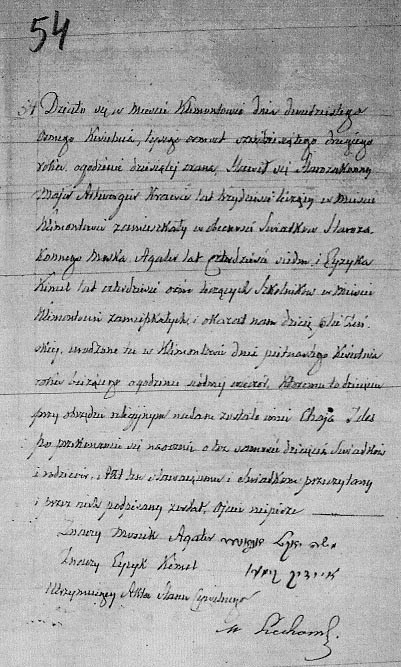 54
54 Działo się w mieście Klimontowie dnia dwudziestego
ósmego Kwietnia, tysiąc ośmset sześćdziesiątego drugiego
roku, o godzinie dziesiątej zrana, Stawił się Starozakonny
Majer, Krawiec lat trzydzieści liczący w mieście
Klimontowie zamieszkały w obecności Świadków Staroza
konnego Moska, Agater lat czterdzieści siedm, i Eyzyka
Kimel lat czterdzieści ośm liczących Szkolników w mieście
Klimontowie zamieszkałych, i okazał nam dziecię płci żeń
skiej, urodzone tu w Klimontowie dnia piętnastego Kwietnia
roku bieżącego o godzinie siódmej wieczór, któremu to dziecięciu
przy obrzędzie religijnym nadane zostało imię Chaja Ides
po przekonaniu się naocznie o tożsamości dziecięcia Świadków
i rodziców, i Akt ten stawającemu i Świadkom przeczytany
i przez nich podpisany został, Ojciec niepisze
Znaczy Mosiek Agater
Znaczy Eyzyk Kimel
Utrzymujący Akta Stanu Cywilnego